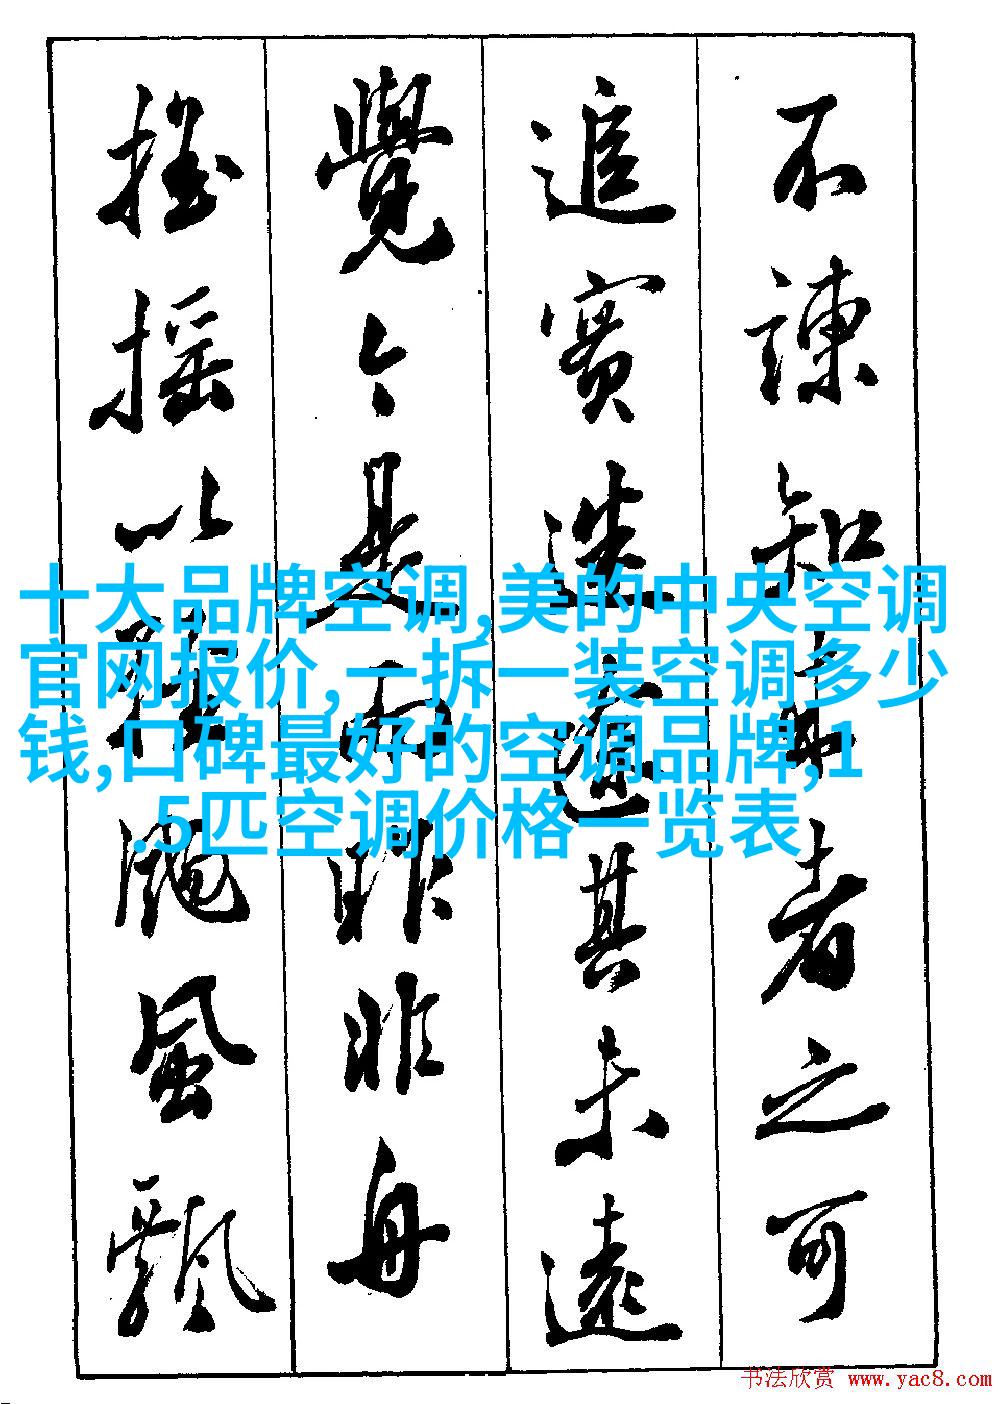 不諫知來者之可
追實迷途其未遠
覺今是而昨非舟
摇摇以輕颺風飄
十大品牌空调,美的中央空调
官网报价,一拆一装空调多少
钱,口碑最好的空调品牌,1
.5匹空调价格一览表
书法欣赏 www.yac8.com